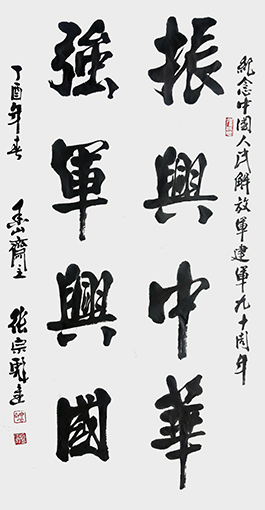 紀念中國人民解放軍建軍九十周年
振興中華
強軍興國
丁酉年春 齋主 張宗 書